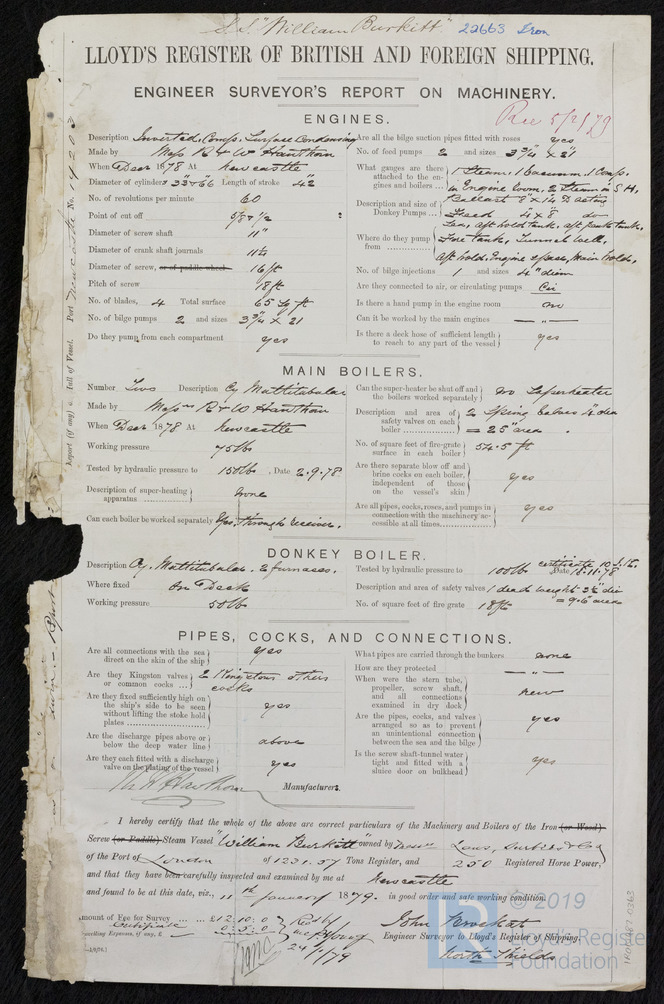 S.S. "William Burkitt" 22663 Iron
LLOYD'S REGISTER OF BRITISH AND FOREIGN SHIPPING.
ENGINEER SURVEYOR'S REPORT ON MACHINERY.
Rec 5/2/79
ENGINES.
Description Inverted, Comp, Surface Condensing
Made by Messrs R & W Hawthorn
When Decr 1878 At Newcastle
Diameter of cylinders 33" & 66 Length of stroke 42
No. of revolutions per minute 60
Point of cut off
Diameter of screw shaft 11"
Diameter of crank shaft journals
Diameter of screw, or of paddle wheel 16 ft
Pitch of screw 18 ft
No. of blades, 4 Total surface 65 Sq ft
No. of bilge pumps 2 and sizes 3¾ x 21
Do they pump from each compartment yes
Are all the bilge suction pipes fitted with roses yes
No. of feed pumps 2 and sizes 3¾ x 21
What gauges are there attached to the engines and boilers ... 1 Steam, 1 Vacuum, 1 Comp.
in Engine Room, 2 Steam in S.H.
Description and size of Donkey Pumps ... Ballast 8" x 14 D acting
Feed 4 x 8" do
Where do they pump from ... Sea, aft hold tank, aft peak tank,
Fore tank, Tunnel well,
aft hold, Engine space, Main hold,
No. of bilge injections 1 and sizes 4" diam
Are they connected to air, or circulating pumps Cir
Is there a hand pump in the engine room no
Can it be worked by the main engines — " —
Is there a deck hose of sufficient length to reach to any part of the vessel yes
MAIN BOILERS.
Number Two Description Cy Multitubular
Made by Messrs R & W Hawthorn
When Decr 1878 At Newcastle
Working pressure 75 lbs
Tested by hydraulic pressure to 150 lbs, Date 2.9.78
Description of super-heating apparatus none
Can each boiler be worked separately Yes, through receiver.
Can the super-heater be shut off and the boilers worked separately no Superheater
Description and area of safety valves on each boiler 2 Spring Valves 4 dia
= 25" area
No. of square feet of fire-grate surface in each boiler 54.5 ft
Are there separate blow off and brine cocks on each boiler, independent of those on the vessel's skin yes
Are all pipes, cocks, roses, and pumps in connection with the machinery accessible at all times yes
DONKEY BOILER.
Description Cy. Multitubular. 2 furnaces.
Where fixed on Deck
Working pressure 50 lb
Tested by hydraulic pressure to 100 lb Date 18.11.78
Description and area of safety valves 1 dead weight 3½" dia
= 9.6" area
No. of square feet of fire grate 18 ft
PIPES, COCKS, AND CONNECTIONS.
Are all connections with the sea direct on the skin of the ship yes
Are they Kingston valves or common cocks ... 2 Kingstons others
cocks
Are they fixed sufficiently high on the ship's side to be seen without lifting the stoke hold plates yes
Are the discharge pipes above or below the deep water line above
Are they each fitted with a discharge valve on the plating of the vessel yes
What pipes are carried through the bunkers none
How are they protected — " —
When were the stern tube, propeller, screw shaft, and all connections examined in dry dock new
Are the pipes, cocks, and valves arranged so as to prevent an unintentional connection between the sea and the bilge yes
Is the screw shaft-tunnel water tight and fitted with a sluice door on bulkhead yes
R & W Hawthorn Manufacturers.
I hereby certify that the whole of the above are correct particulars of the Machinery and Boilers of the Iron (or Wood)
Screw (or Paddle) Steam Vessel "William Burkitt" owned by Messrs
of the Port of London of 1231.37 Tons Register, and 250 Registered Horse Power,
and that they have been carefully inspected and examined by me at Newcastle
and found to be at this date, viz., 11th January 1879. in good order and safe working condition.
Amount of Fee for Survey ... £12.10.0
Certificate
Travelling Expenses, if any, £
24/1/79
Engineer Surveyor to Lloyd's Register of Shipping,
North Shields
© 2019
Lloyd's Register
Foundation